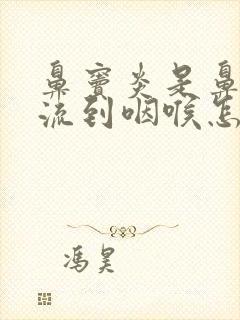 鼻窦炎是鼻
流到咽喉怎
冯昊